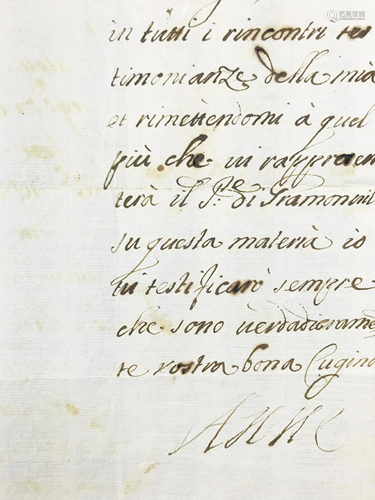 in tutti i rincontri tes
timonianze della mia
et rimettendomi à quel
più che vi rappresen
terà il S.re di Gramonvil
su questa materia io
vi testificarò sempre
che sono verdadieramen
te vostra bona Cugina
Anne